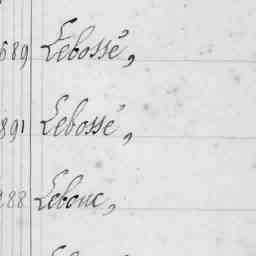 689 Lebossé,
891 Lebossé,
288 Lebouc,